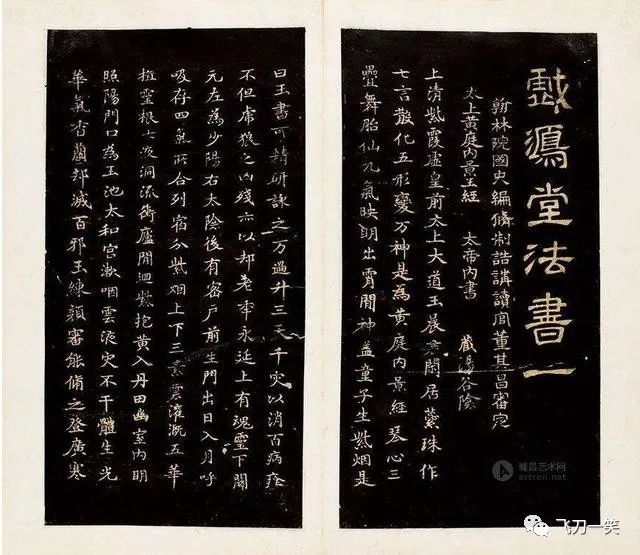 戲鴻堂法書一
翰林院國史編脩制誥講讀官董其昌審定
太上黃庭內景玉經 太帝內書 藏暘谷陰
上清紫霞虛皇前太上大道玉晨君閒居蘂珠作
七言散化五形變万神是為黃庭內景經琴心三
疊舞胎仙九氣映明出霄間神盖童子生紫烟是
曰玉書可精研詠之万過升三天千灾以消百病痊
不但虎狼之凶殘亦以却老年永延上有魂靈下關
元左為少陽右太陰後有密戶前生門出日入月呼
吸存四氣所合列宿分紫烟上下三素雲灌溉五華
植靈根七液洞流衝廬間迴紫抱黃入丹田幽室內明
照陽門口為玉池太和宮漱咽雲液灾不干體生光
華氣香蘭却滅百邪玉練顏審能脩之登廣寒
雅昌艺术网
artron.net
飞刀一笑